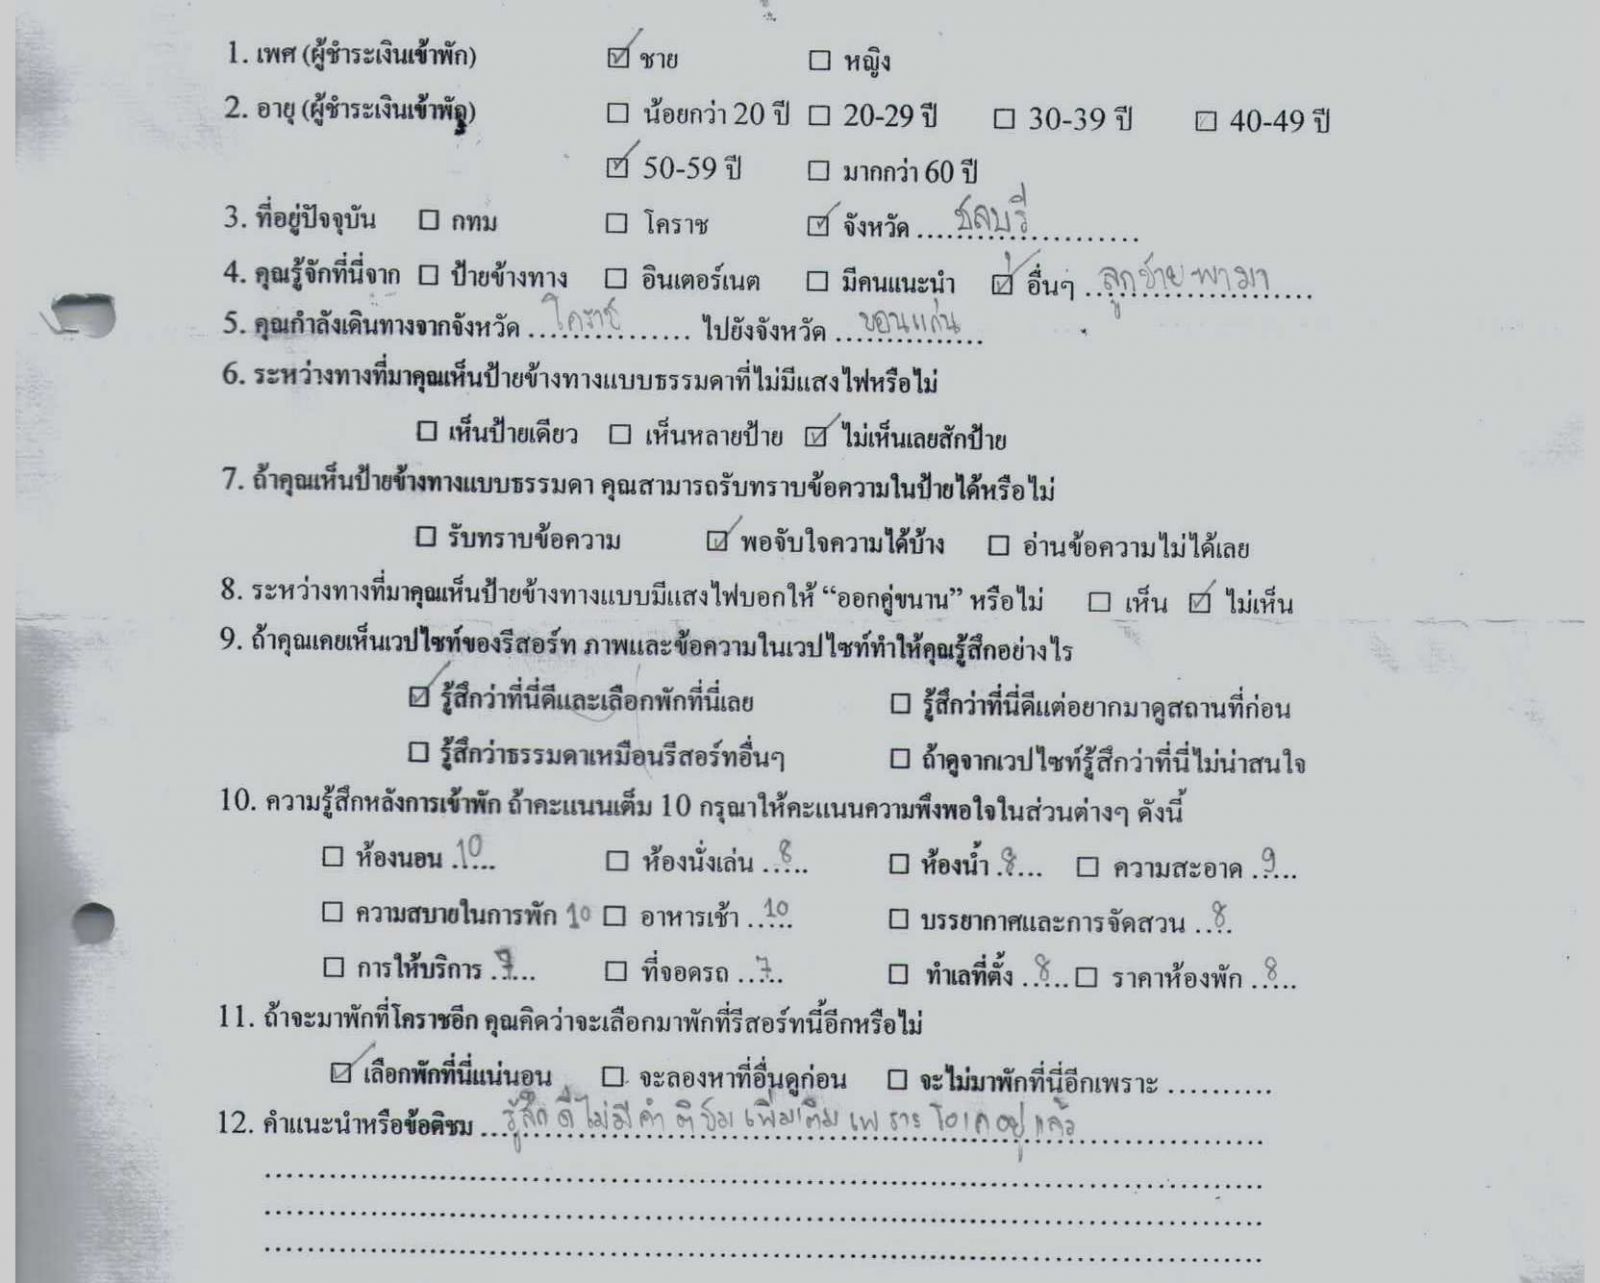 1. เพศ (ผู้ชำระเงินเข้าพัก) ☑ ชาย ☐ หญิง
2. อายุ (ผู้ชำระเงินเข้าพัก) ☐ น้อยกว่า 20 ปี ☐ 20-29 ปี ☐ 30-39 ปี ☐ 40-49 ปี
☑ 50-59 ปี ☐ มากกว่า 60 ปี
3. ที่อยู่ปัจจุบัน ☐ กทม ☐ โคราช ☑ จังหวัด ชลบุรี
4. คุณรู้จักที่นี่จาก ☐ ป้ายข้างทาง ☐ อินเตอร์เนต ☐ มีคนแนะนำ ☑ อื่นๆ ลูกชายพามา
5. คุณกำลังเดินทางจากจังหวัด โคราช ไปยังจังหวัด ขอนแก่น
6. ระหว่างทางที่มาคุณเห็นป้ายข้างทางแบบธรรมดาที่ไม่มีแสงไฟหรือไม่
☐ เห็นป้ายเดียว ☐ เห็นหลายป้าย ☑ ไม่เห็นเลยสักป้าย
7. ถ้าคุณเห็นป้ายข้างทางแบบธรรมดา คุณสามารถรับทราบข้อความในป้ายได้หรือไม่
☐ รับทราบข้อความ ☑ พอจับใจความได้บ้าง ☐ อ่านข้อความไม่ได้เลย
8. ระหว่างทางที่มาคุณเห็นป้ายข้างทางแบบมีแสงไฟบอกให้ “ออกคู่ขนาน” หรือไม่ ☐ เห็น ☑ ไม่เห็น
9. ถ้าคุณเคยเห็นเวปไซท์ของรีสอร์ท ภาพและข้อความในเวปไซท์ทำให้คุณรู้สึกอย่างไร
☑ รู้สึกว่าที่นี่ดีและเลือกพักที่นี่เลย ☐ รู้สึกว่าที่นี่ดีแต่อยากมาดูสถานที่ก่อน
☐ รู้สึกว่าธรรมดาเหมือนรีสอร์ทอื่นๆ ☐ ถ้าดูจากเวปไซท์รู้สึกว่าที่นี่ไม่น่าสนใจ
10. ความรู้สึกหลังการเข้าพัก ถ้าคะแนนเต็ม 10 กรุณาให้คะแนนความพึงพอใจในส่วนต่างๆ ดังนี้
☐ ห้องนอน 10 ☐ ห้องนั่งเล่น 8 ☐ ห้องน้ำ 8 ☐ ความสะอาด 9
☐ ความสบายในการพัก 10 ☐ อาหารเช้า 10 ☐ บรรยากาศและการจัดสวน 8
☐ การให้บริการ ☐ ที่จอดรถ 7 ☐ ทำเลที่ตั้ง 8 ☐ ราคาห้องพัก 8
11. ถ้าจะมาพักที่โคราชอีก คุณคิดว่าจะเลือกมาพักที่รีสอร์ทนี้อีกหรือไม่
☑ เลือกพักที่นี่แน่นอน ☐ จะลองหาที่อื่นดูก่อน ☐ จะไม่มาพักที่นี่อีกเพราะ ..........
12. คำแนะนำหรือข้อติชม รู้สึกดีไม่มีคำติชมเพิ่มเติมเพราะโอเคอยู่แล้ว